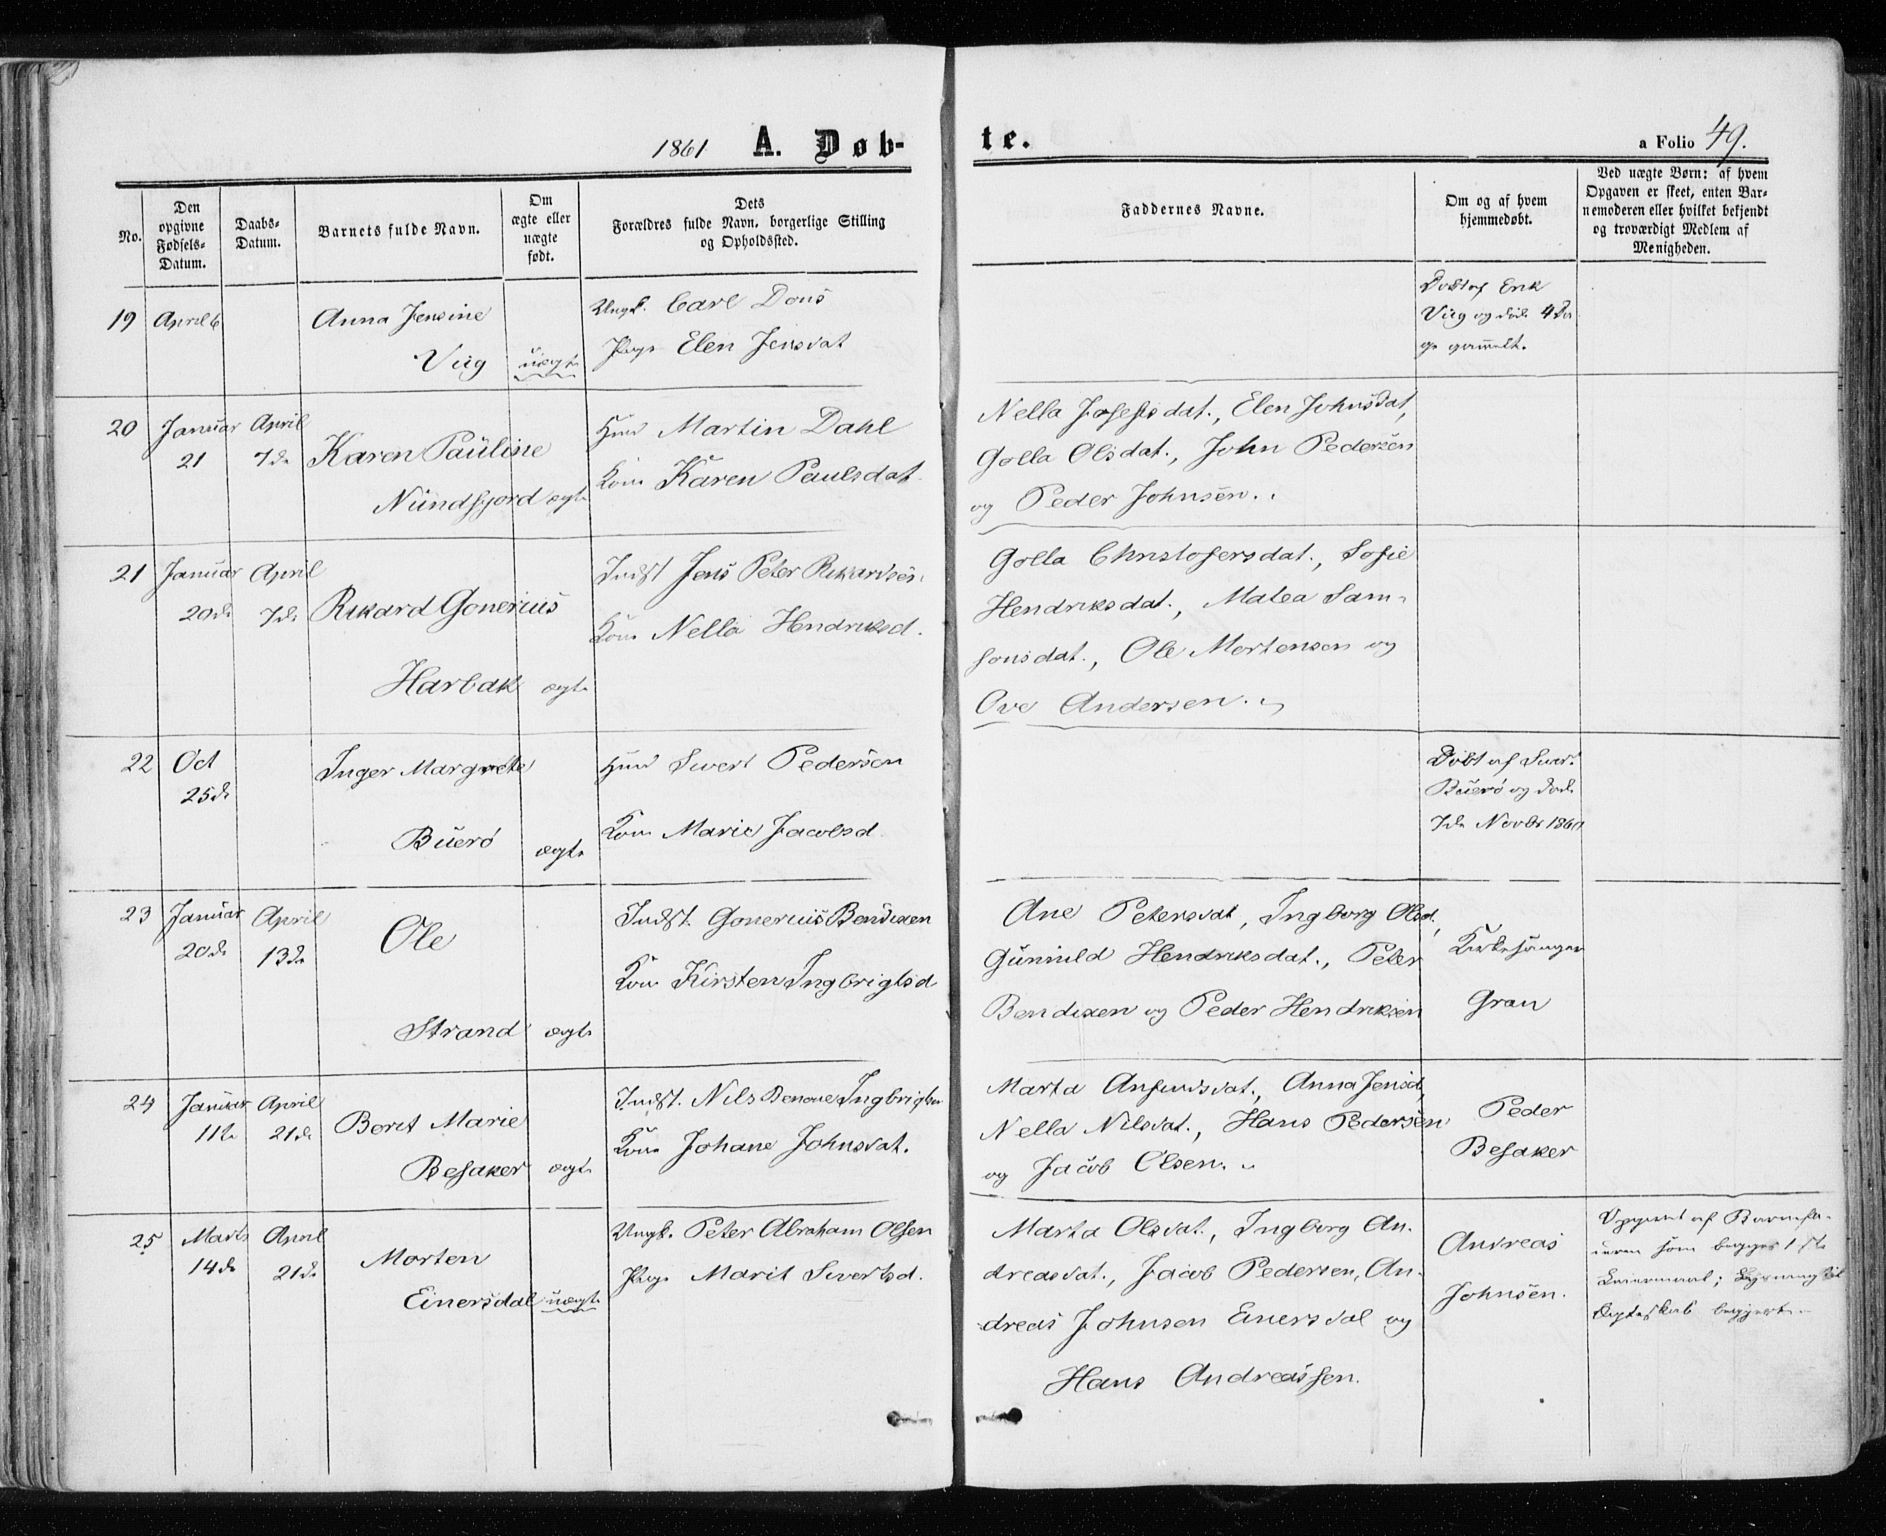 1861 A. Døb-
te.
a Folio 49.
No.
Den
opgivne
Fødsels-
Datum.
Daabs-
Datum.
Barnets fulde Navn.
Om
ægte eller
uægte
født.
Dets
Forældres fulde Navn, borgerlige Stilling
og Opholdssted.
Faddernes Navne.
Om og af hvem
hjemmedøbt.
Ved uægte Børn: af hvem
Opgaven er skeet, enten Bar-
nemoderen eller hvilket bekjendt
og troværdigt Medlem af
Menigheden.
19
April 6
Anna Jensine
Viig
uægte
Ungk. Carl Dons
Pige Elen Jensdat
Døbt af Erik
Viig og død 4 Da
ge gammelt.
20
Januar
21
April
7de
Karen Pauline
Nündfjord
ægte
Huusmd Martin Dahl
Kone Karen Paulsdat.
Nella Josefsdat., Elen Johnsdat,
Golla Olsdat., John Pedersen
og Peder Johnsen.
21
Januar
20de
April
7de
Rikard Gonerius
Harbak
ægte
Indst Jens Peter Rikardsen
Kone Nella Hendriksd.
Golla Christofersdat., Sofie
Hendriksdat., Malea Sam-
sonsdat., Ole Mortensen og
Ove Andersen.
22
Oct
25de
Inger Margrete
Büerø
ægte
Sivert Pedersen
Kone Marie Jacobsd
Døbt af Sivert
Büerø og død
7de Novbr 1860
23
Januar
20de
April
13de
Ole
Strand
ægte
Indst. Gonerius Bendixen
Kone Kirsten Ingbrigtsd
Ane Petersdat, Ingborg Olsd,
Günnild Hendriksdat., Peter
Bendixen og Peder Hendriksen
Kirkesanger
Gran
24
Januar
11te
April
21de
Beret Marie
Besaker
ægte
Indst. Nils Benone Ingbrigtsen
Kone Johane Johnsdat.
Marta Anfindsdat., Anna Jensd,
Nella Nilsdat., Hans Pedersen
og Jacob Olsen.
Peder
Besaker
25
Marts
14de
April
21de
Morten
Einersdal
uægte
Ungk. Peter Abraham Olsen
Pige Marit Sivertsd.
Marta Olsdat., Ingborg An-
dreasdat., Jacob Pedersen, An-
dreas Johnsen Einersdal og
Hans Andreassen.
Andreas
Johnsen.
Opgivet af Barnefa-
deren som begges 1ste
Leiermaal; Lysning til
Ægteskab begjert.